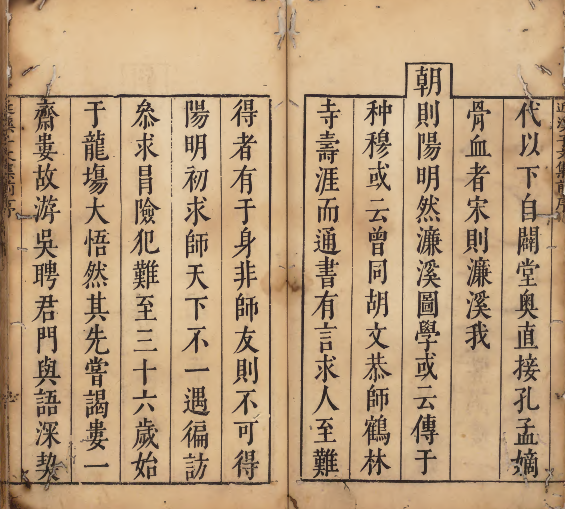 代以下自闢堂奥直接孔孟嫡
骨血者宋則濂溪我
朝則陽明然濂溪圖學或云傳于
种穆或云曾同胡文恭師鶴林
寺壽涯而通書有言求人至難
得者有于身非師友則不可得
陽明初求師天下不一遇徧訪
叅求冐險犯難至三十六歲始
于龍塲大悟然其先嘗謁婁一
齋婁故游吳聘君門與語深契